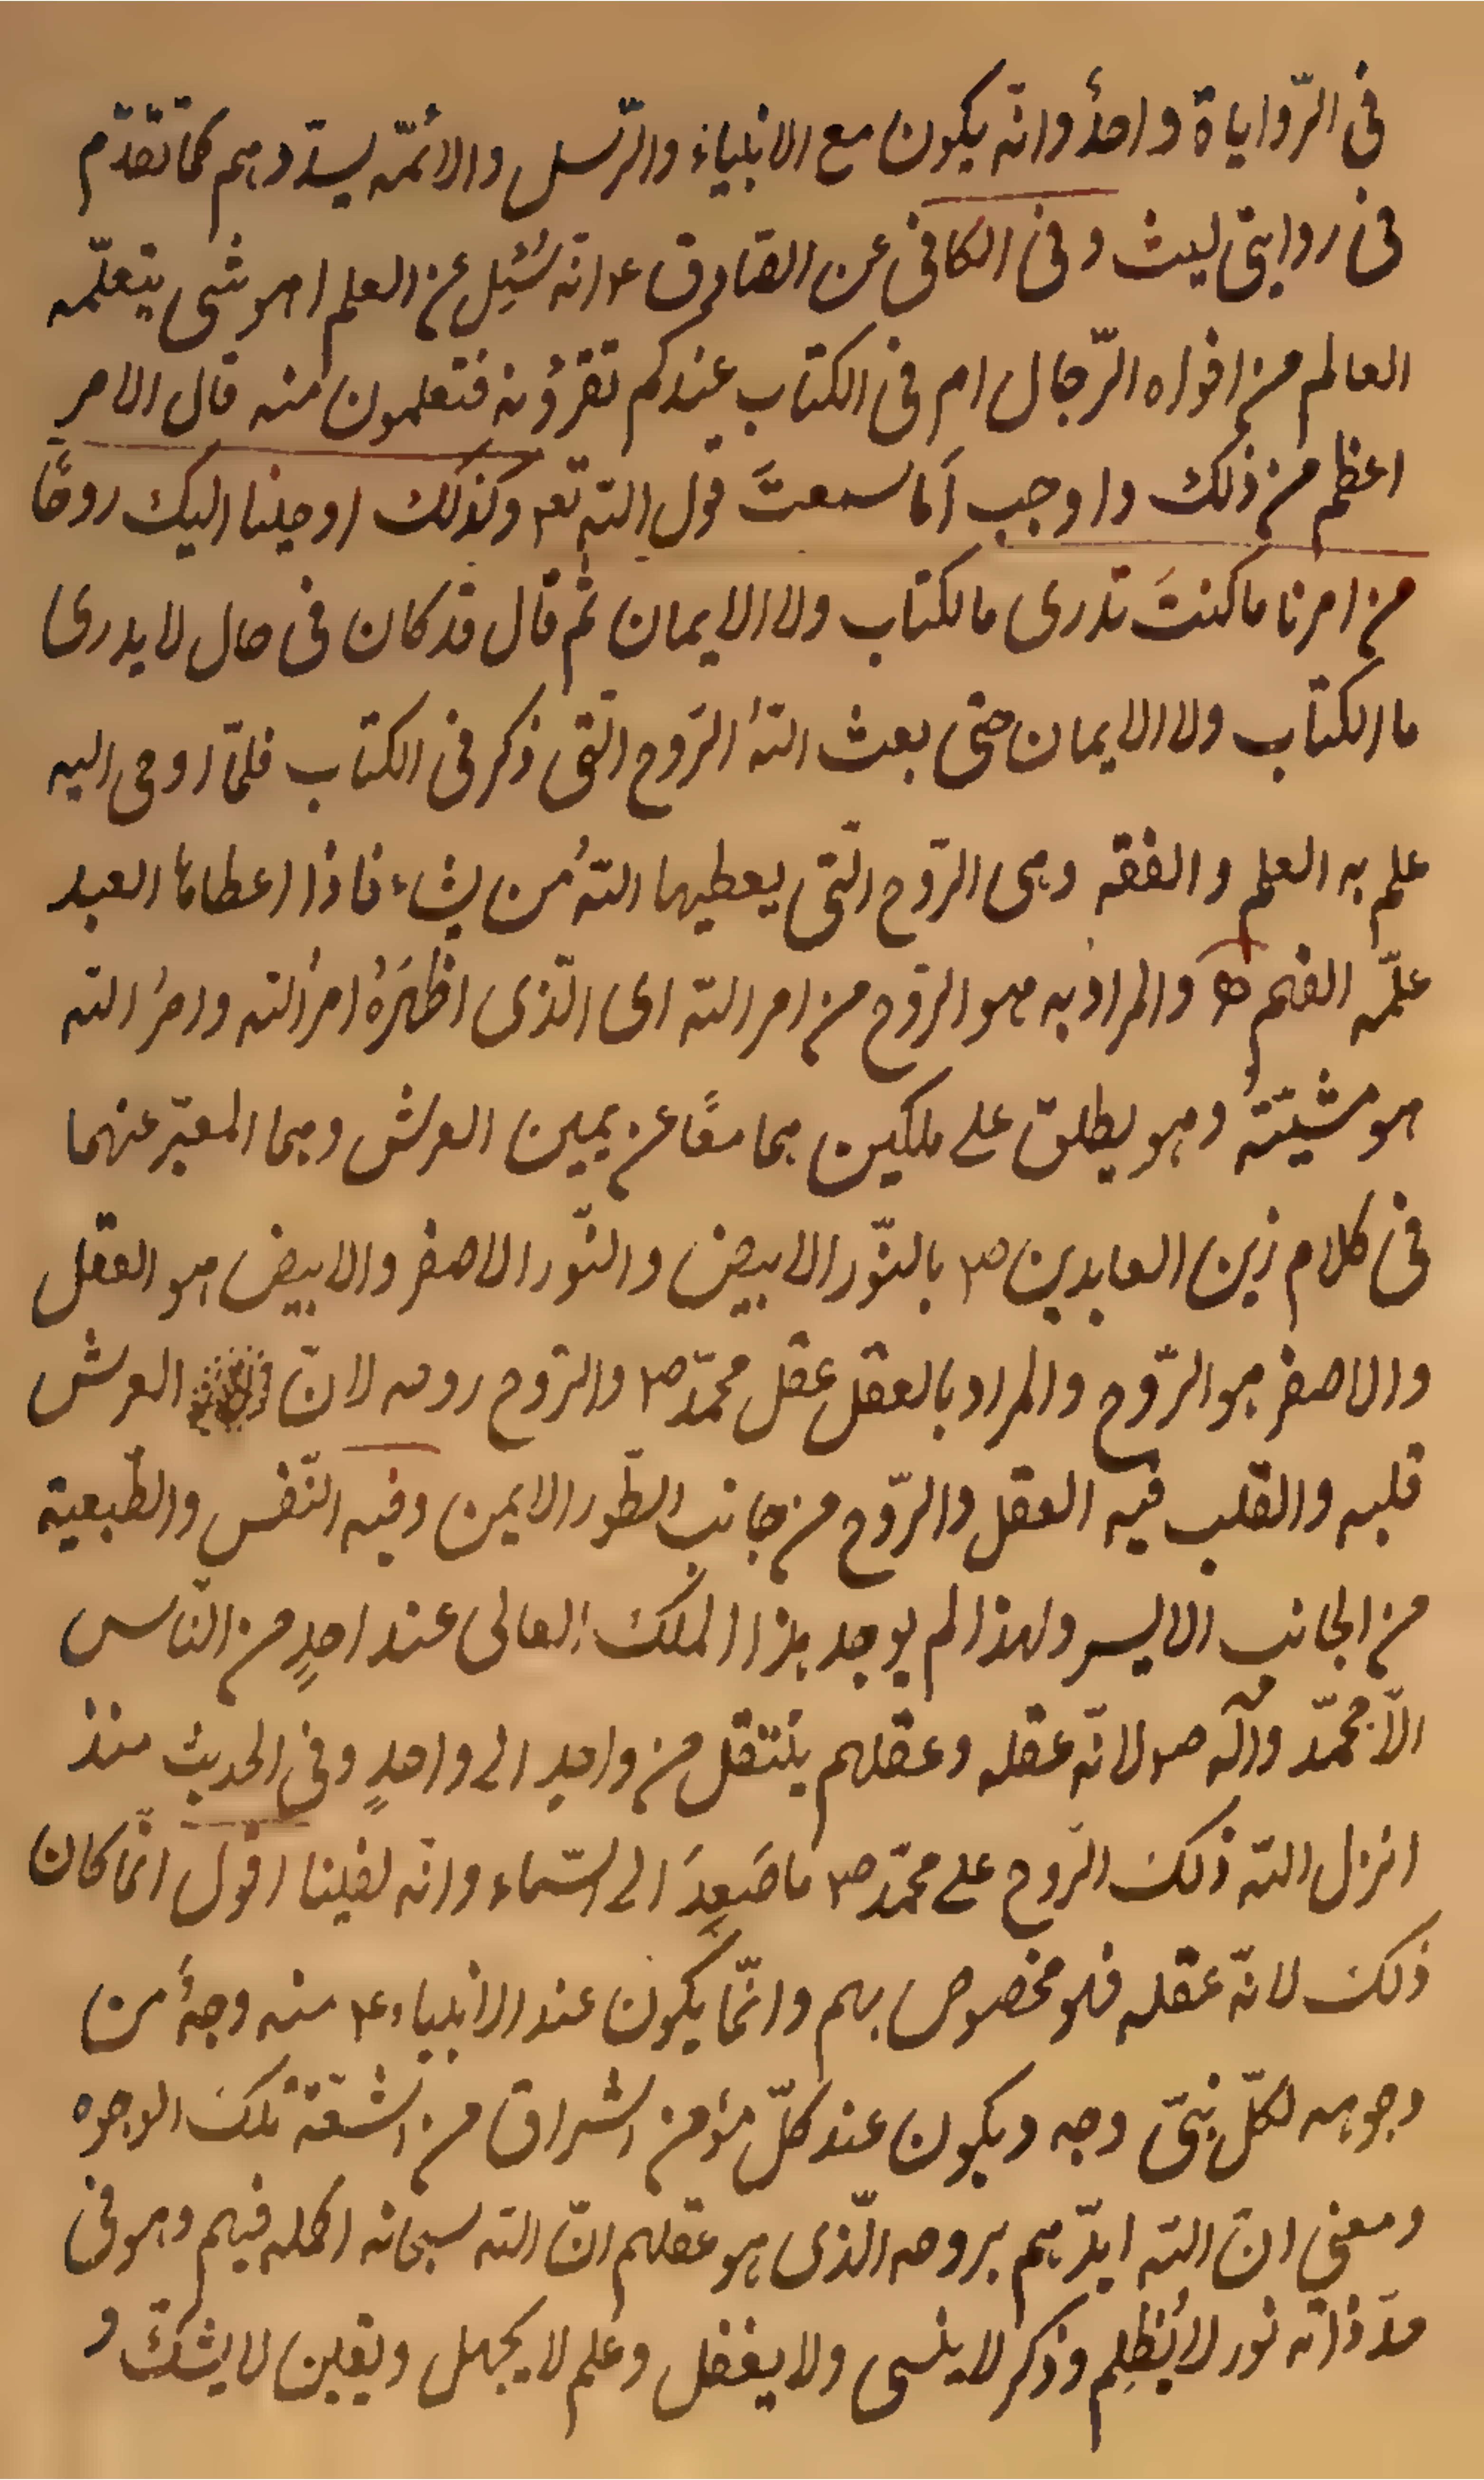 فى الرّواياة واحدٌ وانّه يكون مع الانبياء والرّسل والائمّه يسدّدهم كما تقدّم
فى روايتى ليث وفى الكافى عن الصّادق ع انّه سُئِل عن العلم اهو شى يتعلّمه
العالم من افواه الرّجال ام فى الكتاب عندكم تقرؤنه فتعلمون منه قال الامر
اعظم من ذلك واوجب أما سمعتَ قول اللّه تع وكذلك اوحينا اليك روحًا
من امرنا ما كنتَ تدرى مالكتاب ولا الايمان ثم قال قد كان فى حال لا يدرى
ما الكتاب ولا الايمان حتى بعث اللّهُ الرّوح الّتى ذكر فى الكتاب فلمّا اوحى اليه
علم به العلم والفقه وهى الرّوح الّتى يعطيها اللّهُ من يشاء فاذا اعطاها العبد
علّمه الفهم ه والمراد به هو الرّوح من امر اللّه اى الّذى اظهَرَهُ امرُ اللّه وامرُ اللّه
هو مشيّتهُ وهو يطلق على ملكين هما معًا عن يمين العرش وهما المعبّر عنهما
فى كلام زين العابدين ص بالنّور الابيض والنّور الاصفر والابيض هو العقل
والاصفر هو الرّوح والمراد بالعقل عقل محمّد ص والرّوح روحه لانّ العرش
قلبه والقلب فيه العقل والرّوح من جانب الطّور الايمن وفيه النّفس والطّبعية
من الجانب الايسر ولهذا لم يوجد هذا الملك العالى عند احدٍ من النّاس
الّا محمّد وآله ص لانّه عقله وعقلهم ينتقل من واحد الى واحدٍ وفى الحديث منذ
انزل اللّه ذلك الرّوح على محمّد ص ما صَعِدَ الى السّماء وانّه لفينا اقول انّما كان
ذلك لانّه عقله فهو مخصوص بهم وانّما يكون عند الانبياء ع منه وجهٌ من
وجوهه لكلّ نبىّ وجه ويكون عند كلّ مؤمن اشراق من اشعّة تلك الوجوه
ومعنى انّ اللّه ايّدهم بروحه الّذى هو عقلهم انّ اللّه سبحانه اكمله فيهم وهو فى
حدّ ذاته نور لا يُظلِم وذكر لا ينسى ولا يغفل وعلم لا يجهل ويقين لا يشكّ و